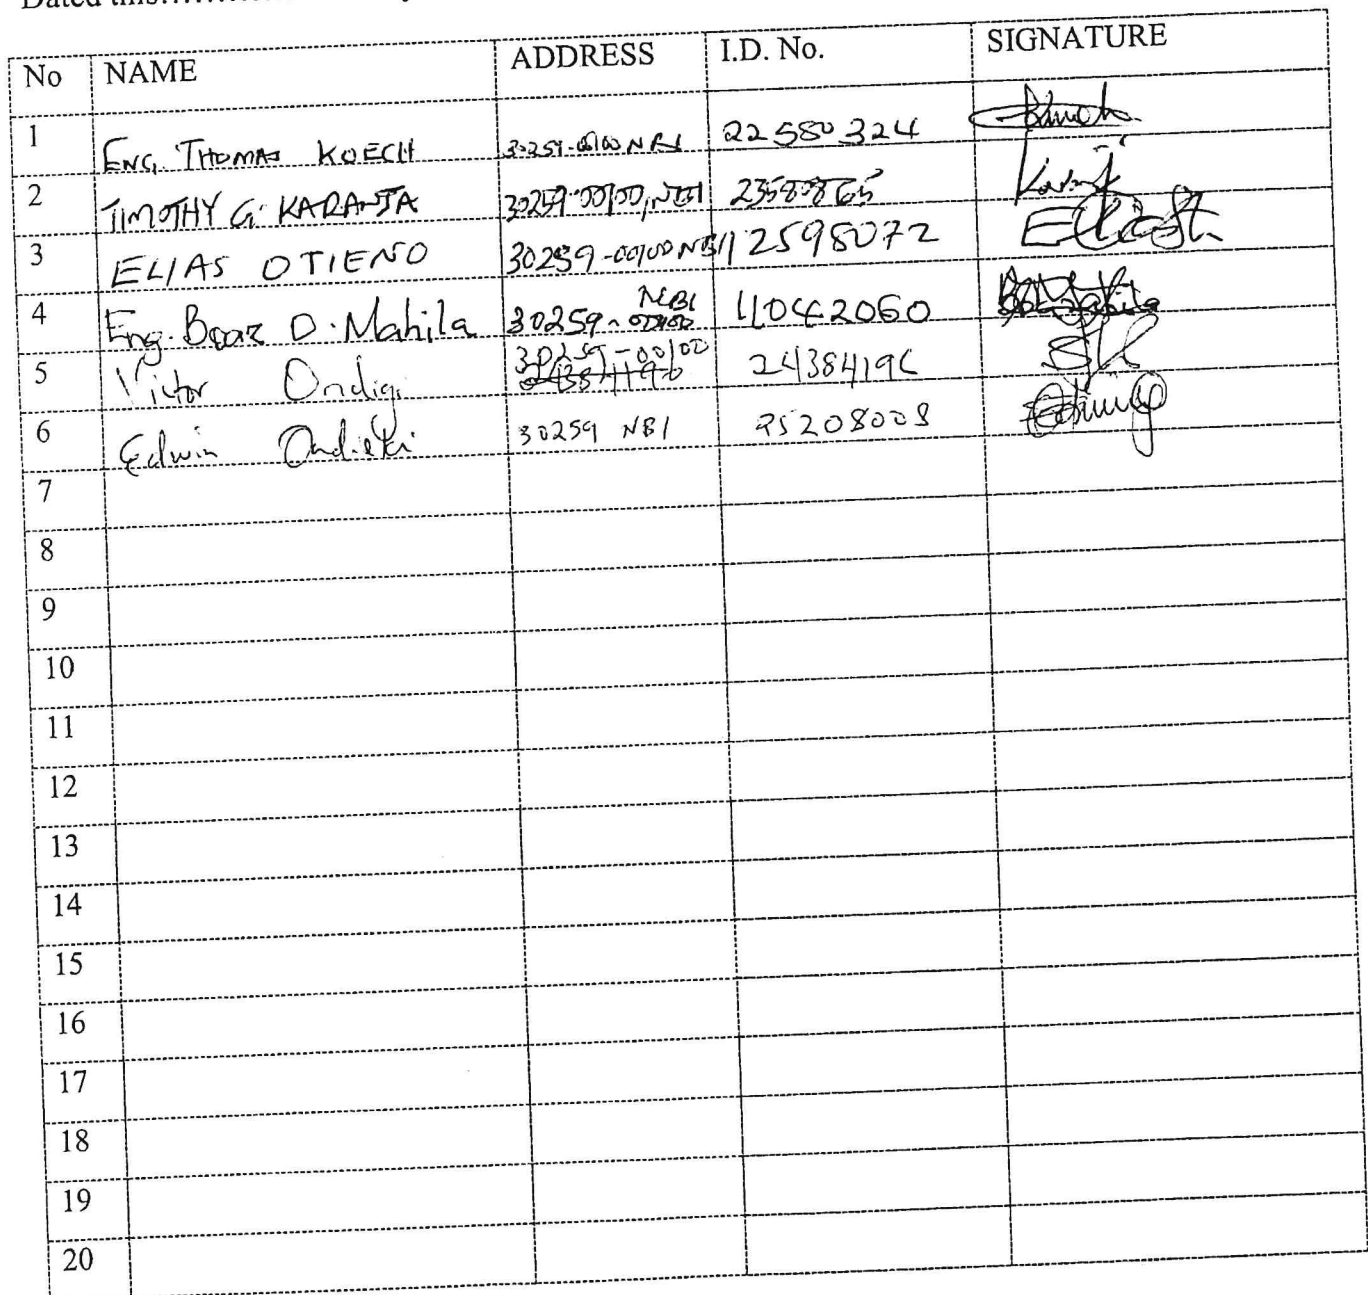 Dated this
No NAME ADDRESS I.D. No. SIGNATURE
1 ENG. THOMAS KOECH 30259-00100 NBI 22580324
2 TIMOTHY G. KARANJA 30259-00100, NBI 23580865
3 ELIAS OTIENO 30259-00100 NBI 12598072
4 Eng. Boaz O. Mahila 30259-00100 NBI 11042060
5 Victor Ondigi 30259-00100 24384196
6 Edwin Ondieki 30259 NBI 25208008
7
8
9
10
11
12
13
14
15
16
17
18
19
20